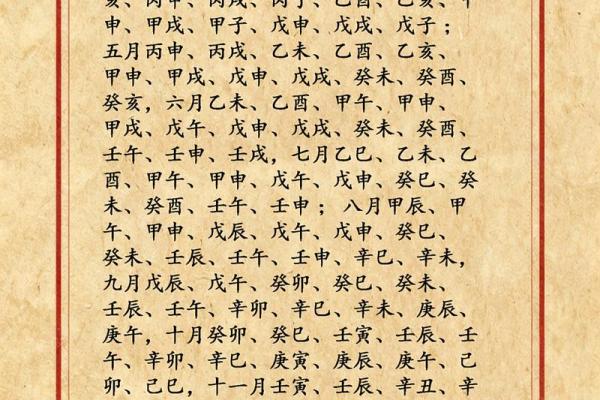 亥、丙申、丙戌、丙子、乙酉、乙亥、甲
申、甲戌、甲子、戊申、戊戌、戊子；
五月丙申、丙戌、乙未、乙酉、乙亥、
甲申、甲戌、戊申、戊戌、癸未、癸酉、
癸亥，六月乙未、乙酉、甲午、甲申、
甲戌、戊午、戊申、戊戌、癸未、癸酉、
壬午、壬申、壬戌，七月乙巳、乙未、乙
酉、甲午、甲申、戊午、戊申、癸巳、癸
未、癸酉、壬午、壬申；八月甲辰、甲
午、甲申、戊辰、戊午、戊申、癸巳、
癸未、壬辰、壬午、壬申、辛巳、辛未，
九月戊辰、戊午、癸卯、癸巳、癸未、
壬辰、壬午、辛卯、辛巳、辛未、庚辰、
庚午，十月癸卯、癸巳、壬寅、壬辰、壬
午、辛卯、辛巳、庚寅、庚辰、庚午、己
卯、己巳，十一月壬寅、壬辰、辛丑、辛